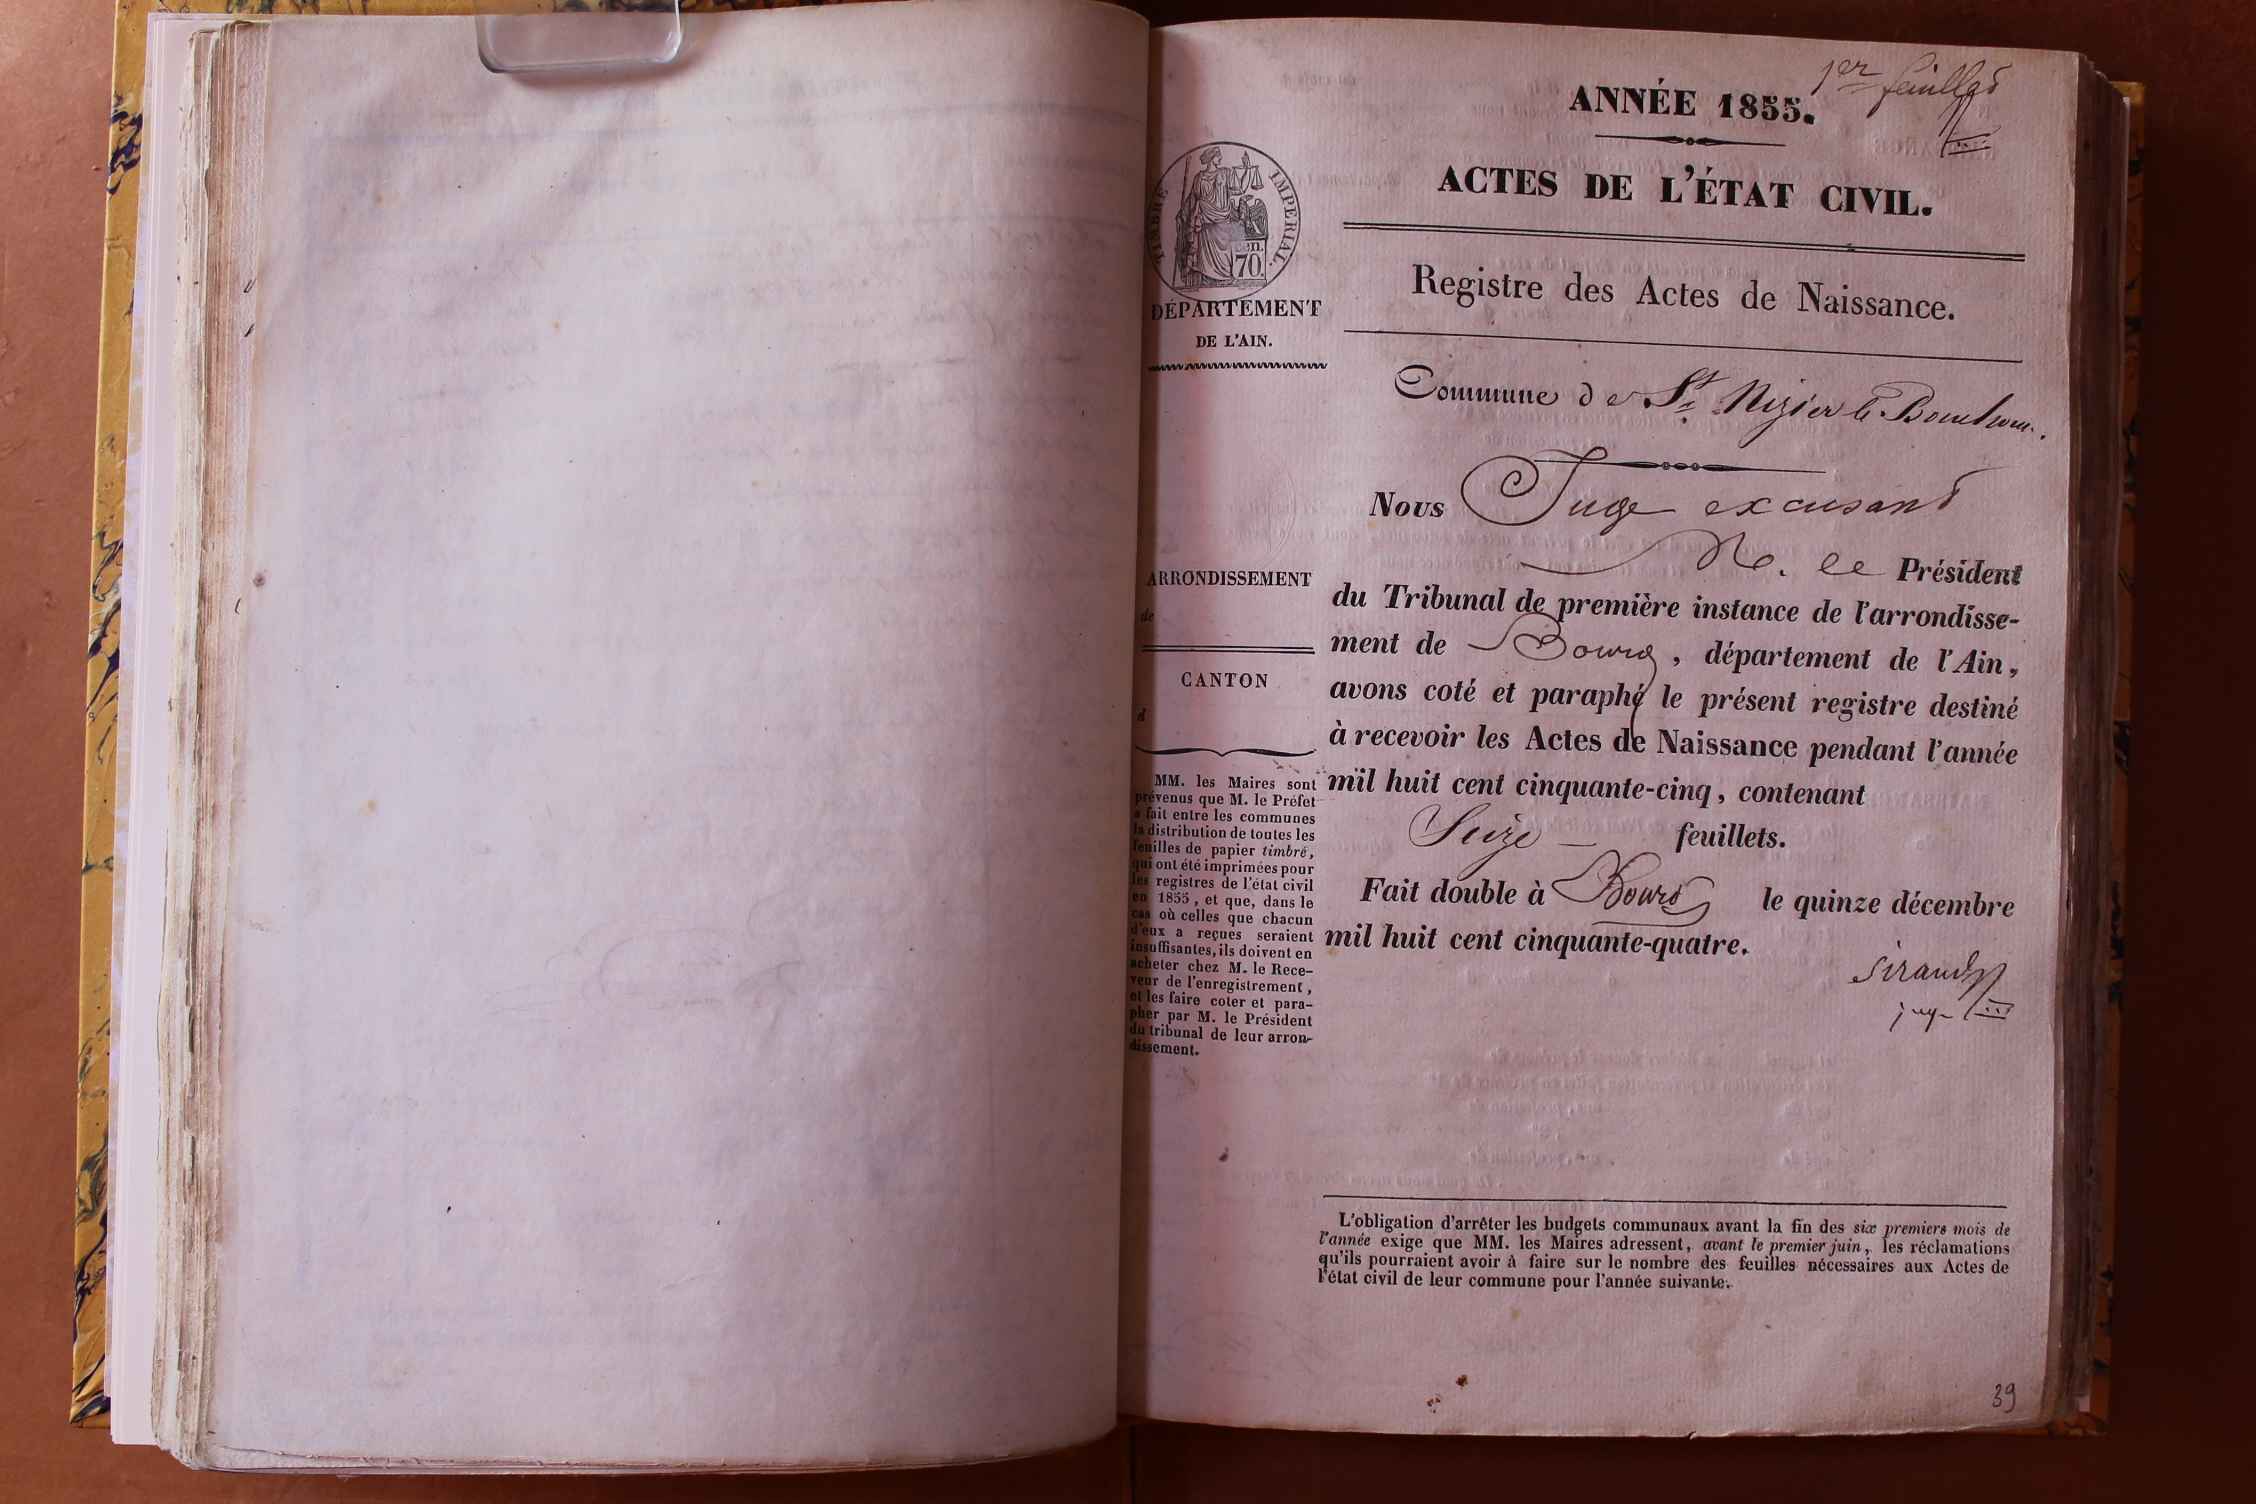 1er feuillet
ANNÉE 1855.
ACTES DE L'ÉTAT CIVIL.
TIMBRE IMPERIAL.
cen.
70.
DÉPARTEMENT
DE L'AIN.
Registre des Actes de Naissance.
Commune de St Nizier le Bouchoux.
Nous Juge excusant
M. le Président
du Tribunal de première instance de l'arrondisse-
ment de Bourg, département de l'Ain,
avons coté et paraphé le présent registre destiné
à recevoir les Actes de Naissance pendant l'année
mil huit cent cinquante-cinq, contenant
Seize feuillets.
Fait double à Bourg le quinze décembre
mil huit cent cinquante-quatre.
Sirand
juge
ARRONDISSEMENT
de
CANTON
d
MM. les Maires sont
prévenus que M. le Préfet
a fait entre les communes
la distribution de toutes les
feuilles de papier timbré,
qui ont été imprimées pour
les registres de l'état civil
en 1855, et que, dans le
cas où celles que chacun
d'eux a reçues seraient
insuffisantes, ils doivent en
acheter chez M. le Rece-
veur de l'enregistrement,
et les faire coter et para-
pher par M. le Président
du tribunal de leur arron-
dissement.
L'obligation d'arrêter les budgets communaux avant la fin des six premiers mois de
l'année exige que MM. les Maires adressent, avant le premier juin, les réclamations
qu'ils pourraient avoir à faire sur le nombre des feuilles nécessaires aux Actes de
l'état civil de leur commune pour l'année suivante.
39